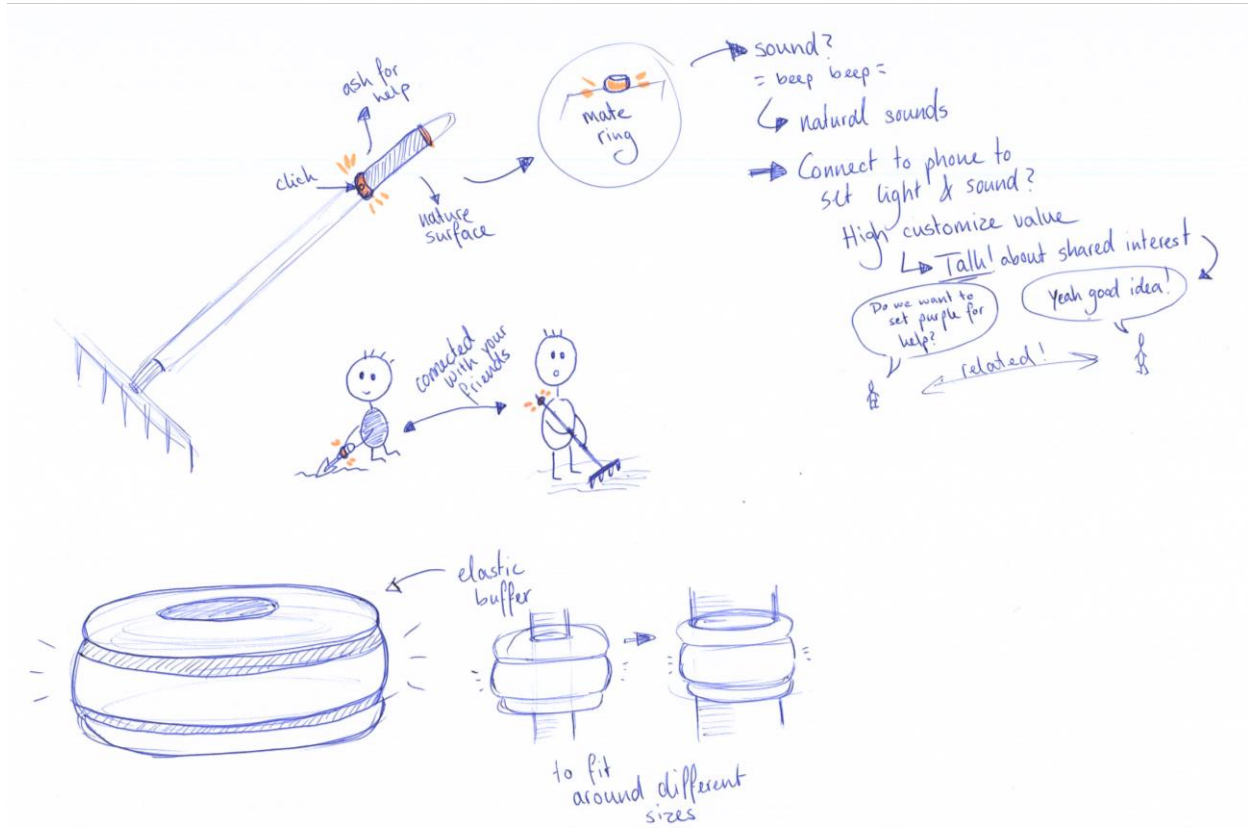 ash for
help
click
nature
surface
mate
ring
sound?
= beep beep =
natural sounds
Connect to phone to
set light & sound?
High customize value
Talk! about shared interest
Do we want to
set purple for
help?
Yeah good idea!
related!
connected
with your
friends
elastic
buffer
to fit
around different
sizes